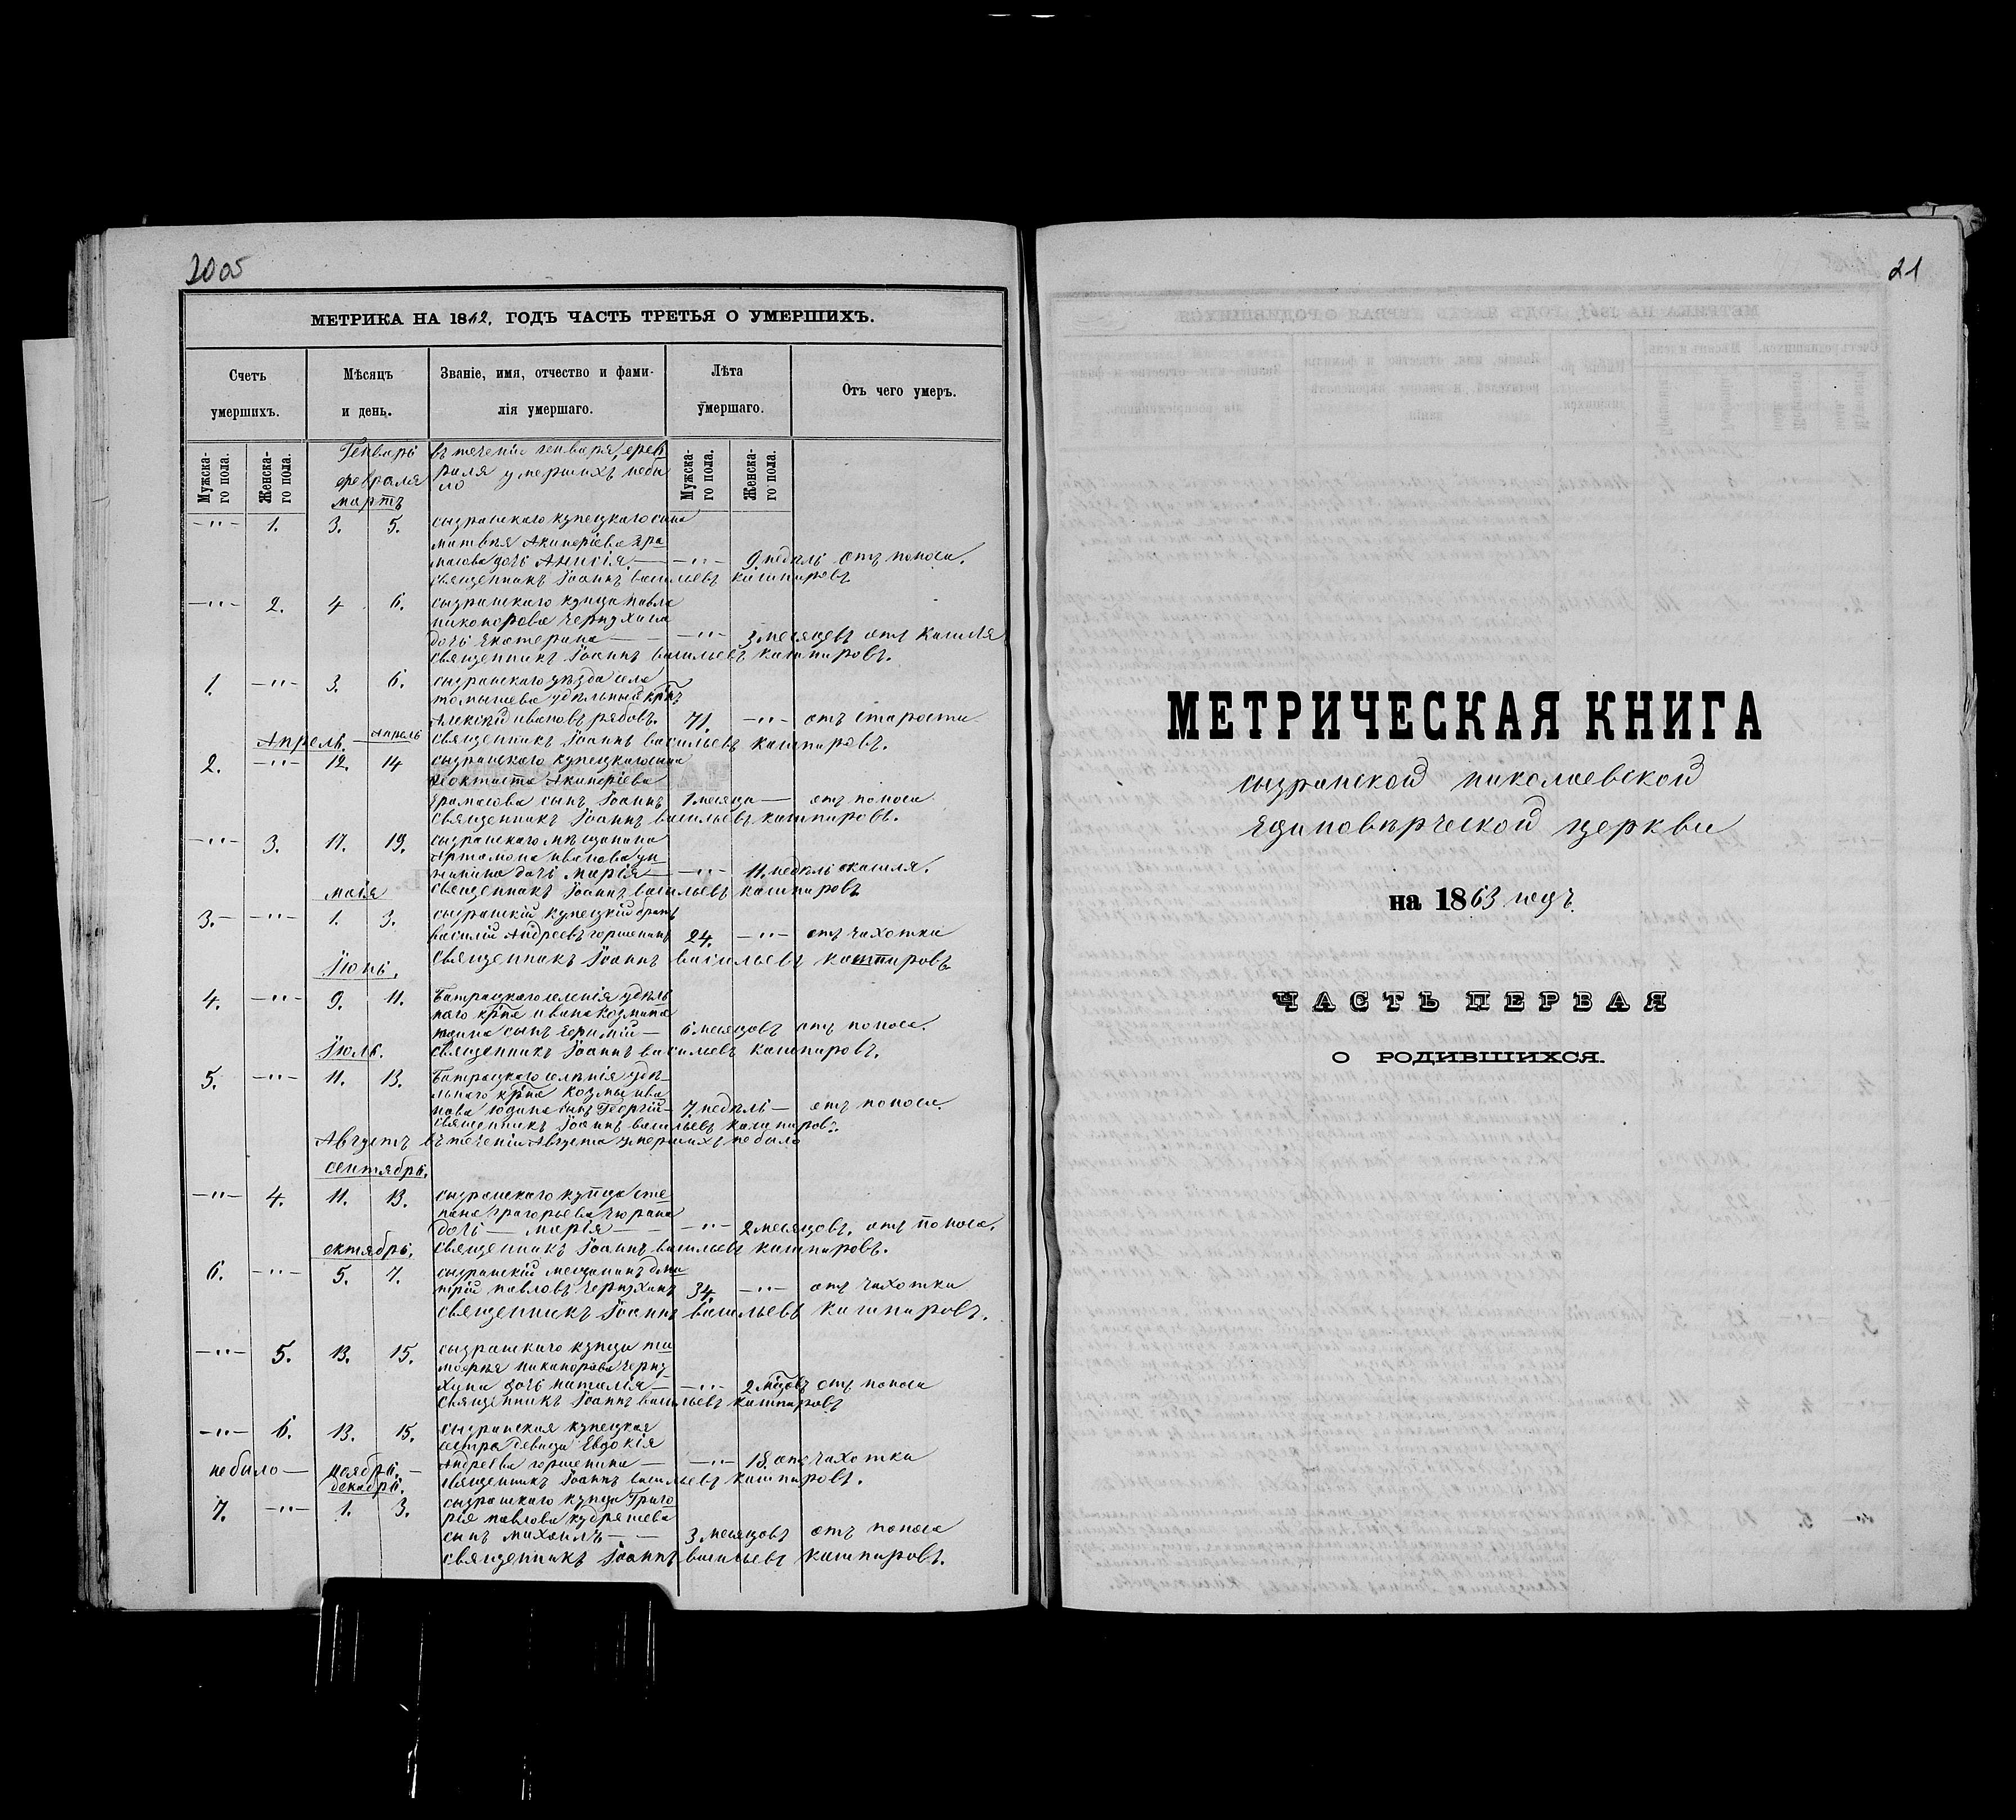 20 об
МЕТРИКА НА 1862, ГОДЪ ЧАСТЬ ТРЕТЬЯ О УМЕРШИХЪ.
Счетъ умершихъ.
Мѣсяцъ и день.
Званіе, имя, отчество и фами-
лія умершаго.
Лѣта умершаго.
Отъ чего умеръ.
Мужска-
го пола.
Женска-
го пола.
Мужска-
го пола.
Женска-
го пола.
Генварь въ теченіи генваря, февр
февраля раля умершихъ небы
ло
мартъ
—"— 1. 3. 5. сызранскаго купецкаго сына
матвѣя Акинфіева Ера
масова дочь Анисія — —"— 9 недѣль отъ поноса.
священникъ Іоаннъ васильевъ кашпировъ
—"— 2. 4 6. сызранскаго купца павла
никонорова Чернухина
дочь Екатерина — —"— 3 месяцевъ отъ кашля
священникъ Іоаннъ васильевъ кашпировъ.
1. —"— 3. 6. сызранскаго уѣзда села
томышева удѣльный крнъ
Алексѣй ивановъ рябовъ. 71. —"— отъ старости
Апрель — Апрель священникъ Іоаннъ васильевъ кашпировъ.
2. —"— 12. 14 сызранскаго купецкаго сына
Феоктиста Акинфіева
Ерамасова сынъ Іоаннъ 1 месяца — отъ поноса
священникъ Іоаннъ васильевъ кашпировъ.
—"— 3. 17. 19. сызранскаго мѣщанина
Артамона иванова
дочь Марія — —"— 11. недѣль отъ кашля.
маія священникъ Іоаннъ васильевъ кашпировъ
3. —"— 1. 3. сызранскій купецкій братъ
василій Андреевъ горшенинъ 24. —"— отъ чахотки
Іюнь. священникъ Іоаннъ васильевъ кашпировъ
4. —"— 9. 11. Батрацкаго селенія удѣль
наго крна ивана козмина
сынъ — 6. месяцовъ отъ поноса.
Іюль. священникъ Іоаннъ васильевъ кашпировъ.
5. —"— 11. 13. Батрацкаго селѣнія удѣ
льнаго крна козмы ива
нова юдина сынъ Георгій — 7. недѣль — отъ поноса.
священникъ Іоаннъ васильевъ кашпировъ.
Августъ въ теченіи Августа умершихъ небыло
сентябрь.
—"— 4. 11. 13. сызранскаго купца сте
пана григорьева тюрина
дочь — марія — —"— 2 месяцовъ. отъ поноса.
октябрь. священникъ Іоаннъ васильевъ кашпировъ.
6. —"— 5. 7. сызранскій мещанинъ дми
трій павловъ Чернухинъ 34. —"— отъ чахотки
священникъ Іоаннъ васильевъ кашпировъ.
—"— 5. 13. 15. сызранскаго купца ти
мофея никанорова Черну
хина дочь наталія — —"— 2 мцовъ отъ поноса
священникъ Іоаннъ васильевъ кашпировъ
—"— 6. 13. 15. сызранская купецкая
сестра девица Евдокія
Андреева горшенина — —"— 18. отъ чахотки
небыло — ноябрь. — священникъ Іоаннъ васильевъ кашпировъ.
декабрь.
7. —"— 1. 3. сызранскаго купца Григо
рія павлова кудряшева
сынъ михаилъ — — 3 месяцовъ отъ поноса
священникъ Іоаннъ васильевъ кашпировъ.
21
МЕТРИЧЕСКАЯ КНИГА
сызранской николаевской
Единовѣрческой церкви
на 1863 годъ.
ЧАСТЬ ПЕРВАЯ
О РОДИВШИХСЯ.